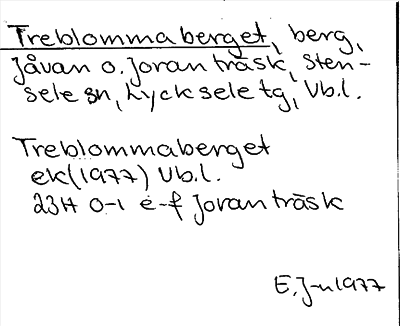 Treblommaberget, berg,
Jåvan o. Joranträsk, Sten-
sele sn, Lycksele tg, Vb.l.
Treblommaberget
ek(1977) Vb.l.
23H 0-1 e-f Joranträsk
E.J-n 1977